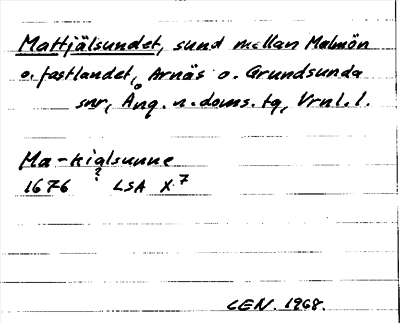 Mattjälsundet, sund mellan Malmön
o. fastlandet, Arnäs o. Grundsunda
snr, Ång. n. doms. tg, Vrnl. l.
Ma-kialsunne
?
1676 LSA X.7
CEN. 1968.